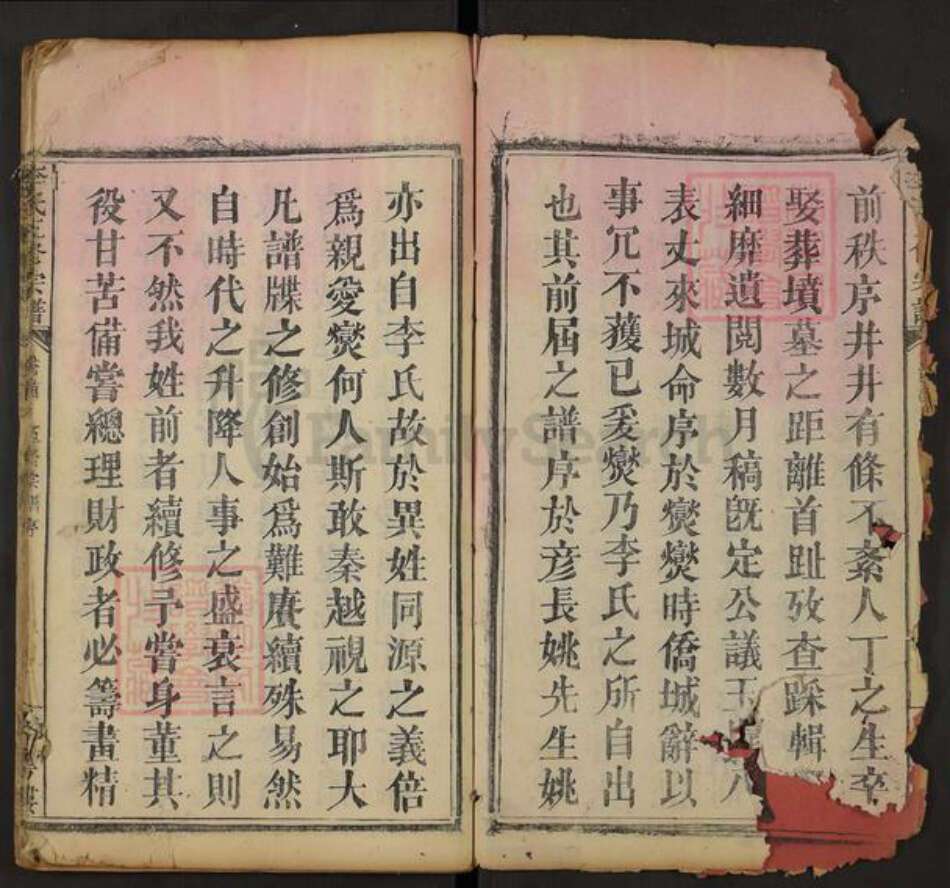 前秩序井井有條不紊人丁之生卒
娶葬墳墓之距離首趾攷查躁輯
細靡遺閱數月稿旣定公議玉
表丈來城命序於爕爕時僑城辭以
事冗不獲已爰爕乃李氏之所自出
也其前屆之譜序於彦長姚先生姚
亦出自李氏故於異姓同源之義倍
爲親愛爕何人斯敢秦越視之耶大
凡譜牒之修創始爲難賡續殊易然
自時代之升降人事之盛衰言之則
又不然我姓前者續修予嘗身董其
役甘苦備嘗總理財政者必籌畫精
李氏五修宗譜
FamilySearch